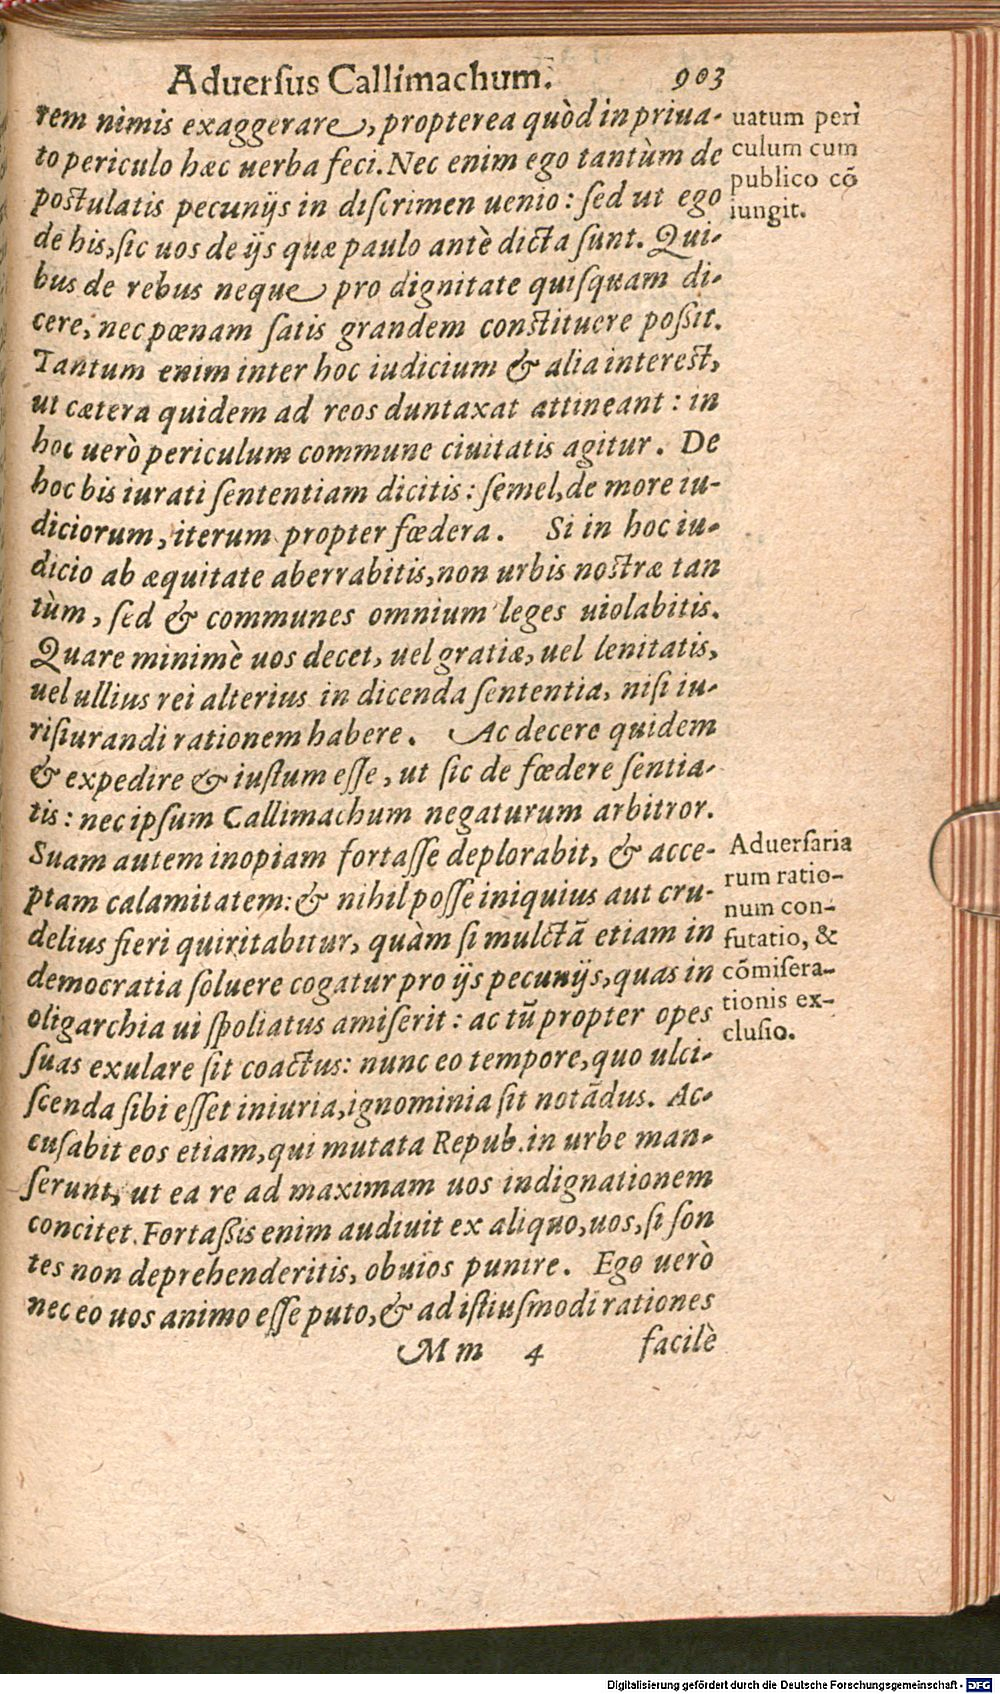 Aduersus Callimachum. 903
rem nimis exaggerare, propterea quòd in priua-
to periculo hæc uerba feci. Nec enim ego tantùm de
postulatis pecunijs in discrimen uenio: sed ut ego
de his, sic uos de ijs quæ paulo antè dicta sunt. Qui-
bus de rebus neque pro dignitate quisquam di-
cere, nec pœnam satis grandem constituere poßit.
Tantum enim inter hoc iudicium & alia interest,
ut cætera quidem ad reos duntaxat attineant: in
hoc uerò periculum commune ciuitatis agitur. De
hoc bis iurati sententiam dicitis: semel, de more iu-
diciorum, iterum propter fœdera. Si in hoc iu-
dicio ab æquitate aberrabitis, non urbis nostræ tan
tùm, sed & communes omnium leges uiolabitis.
Quare minimè uos decet, uel gratiæ, uel lenitatis,
uel ullius rei alterius in dicenda sententia, nisi iu-
risiurandi rationem habere. Ac decere quidem
& expedire & iustum esse, ut sic de fœdere sentia-
tis: nec ipsum Callimachum negaturum arbitror.
Suam autem inopiam fortasse deplorabit, & acce-
ptam calamitatem: & nihil posse iniquius aut cru-
delius fieri quiritabitur, quàm si mulctā etiam in
democratia soluere cogatur pro ijs pecunijs, quas in
oligarchia ui spoliatus amiserit: ac tū propter opes
suas exulare sit coactus: nunc eo tempore, quo ulci-
scenda sibi esset iniuria, ignominia sit notādus. Ac-
cusabit eos etiam, qui mutata Repub. in urbe man-
serunt, ut ea re ad maximam uos indignationem
concitet. Fortaßis enim audiuit ex aliquo, uos, si son
tes non deprehenderitis, obuios punire. Ego uerò
nec eo uos animo esse puto, & ad istiusmodi rationes
Mm 4 facilè
uatum peri
culum cum
publico cō
iungit.
Aduersaria
rum ratio-
num con-
futatio, &
cōmisera-
tionis ex-
clusio.
Digitalisierung gefördert durch die Deutsche Forschungsgemeinschaft - DFG